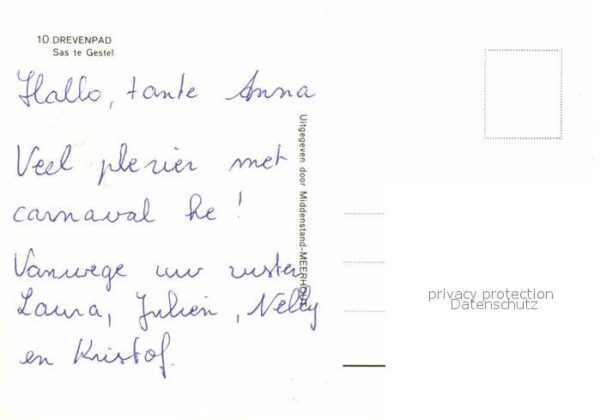 10 DREVENPAD
Sas te Gestel
Hallo, tante Anna
Veel plezier met
carnaval he!
Vanwege uw zuster
Laura, Julien, Nelly
en Kristof.
Uitgegeven door Middenstand-MEERHOUT
privacy protection
Datenschutz